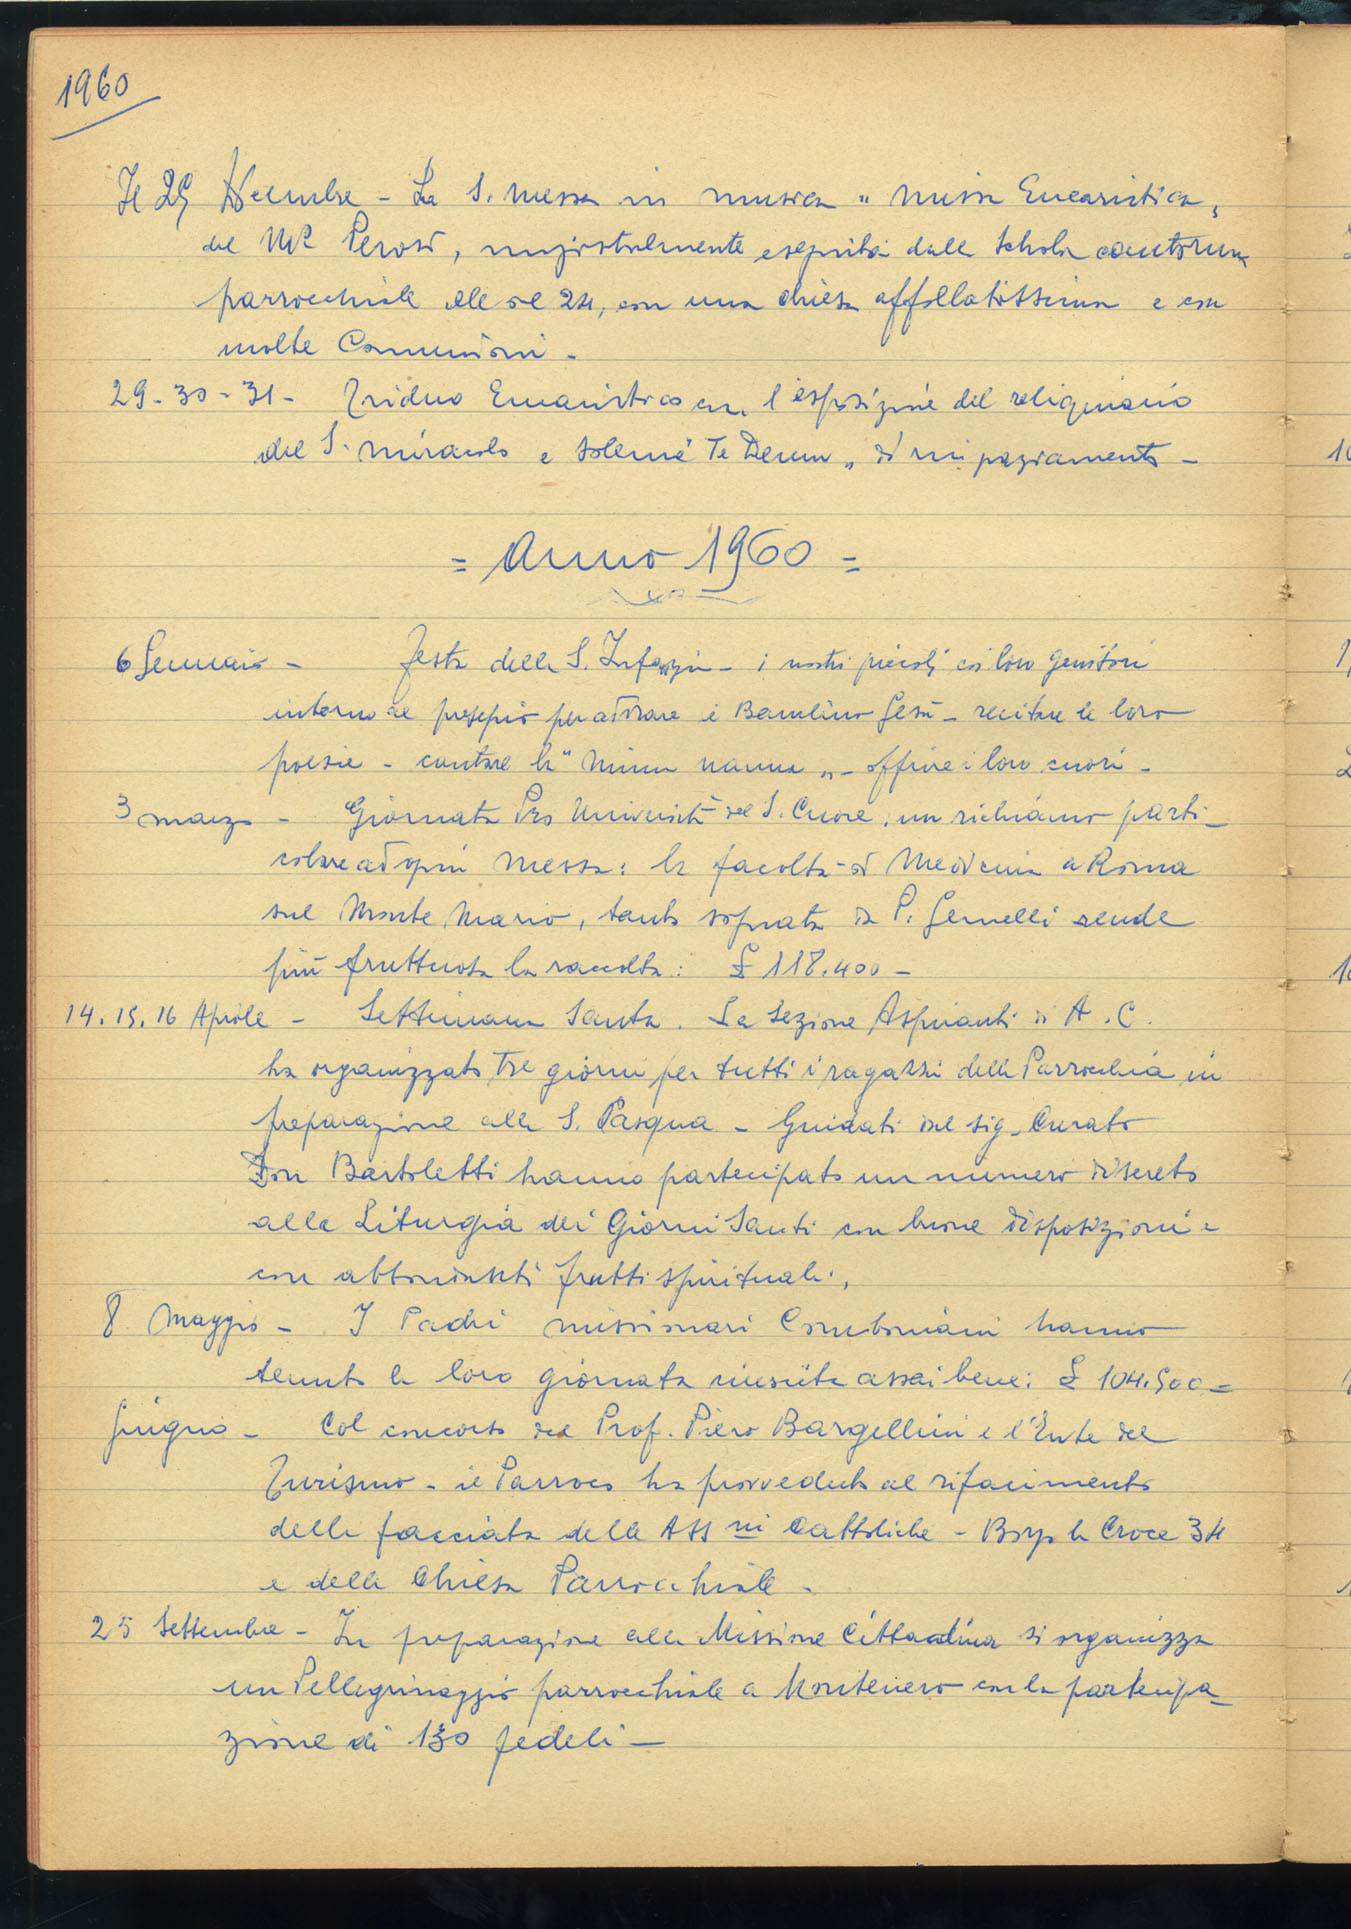 1960
Il 25 Dicembre - La S. Messa in musica "Missa Eucaristica"
del M° Perosi, magistralmente eseguita dalla Schola cantorum
parrocchiale alle ore 24, con una chiesa affollatissima e con
molte Comunioni -
29-30-31- Triduo Eucaristico con l'esposizione del reliquiario
del S. Miracolo e solenne "Te Deum" di ringraziamento -
= Anno 1960 =
6 Gennaio - Festa della S. Infanzia - i nostri piccoli coi loro genitori
intorno al presepio per adorare il Bambino Gesù - recitare le loro
poesie - cantare la "Ninna nanna" - offrire i loro cuori -
3 marzo - Giornata Pro Università del S. Cuore, un richiamo parti-
colare ad ogni Messa: la facoltà di Medicina a Roma
sul Monte Mario, tanto sognata da P. Gemelli rende
più fruttuosa la raccolta: £ 118.400 -
14.15.16 Aprile - Settimana Santa. La Sezione Aspiranti di A.C.
ha organizzato tre giorni per tutti i ragazzi della Parrocchia in
preparazione alla S. Pasqua - Guidati dal sig. Curato
Don Bartoletti hanno partecipato un numero discreto
alla Liturgia dei Giorni Santi con buone disposizioni e
con abbondanti frutti spirituali.
8 Maggio - I Padri missionari Comboniani hanno
tenuto la loro giornata riuscita assai bene: £ 104.500 =
Giugno - Col concorso del Prof. Piero Bargellini e l'Ente del
Turismo - il Parroco ha provveduto al rifacimento
della facciata delle Ass.ni Cattoliche - Borgo la Croce 34
e della Chiesa Parrocchiale -
25 Settembre - In preparazione alla Missione Cittadina si organizza
un Pellegrinaggio parrocchiale a Montenero con la partecipa-
zione di 130 fedeli -